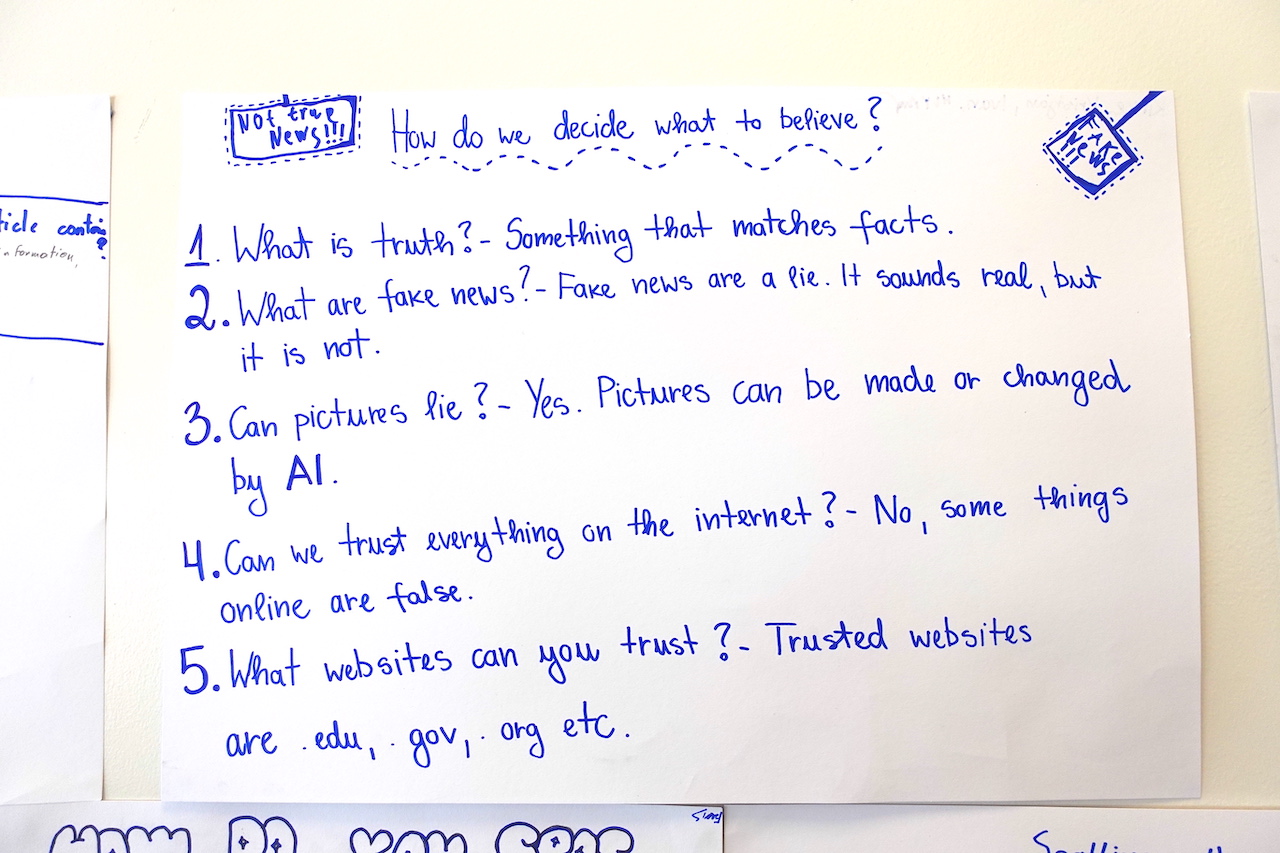 Not true
News!!!
How do we decide what to believe?
FAKE
News
!!!
1. What is truth? - Something that matches facts.
2. What are fake news? - Fake news are a lie. It sounds real, but
it is not.
3. Can pictures lie? - Yes. Pictures can be made or changed
by AI.
4. Can we trust everything on the internet? - No, some things
online are false.
5. What websites can you trust? - Trusted websites
are .edu, .gov, .org etc.
ticle contain
?
nformation,